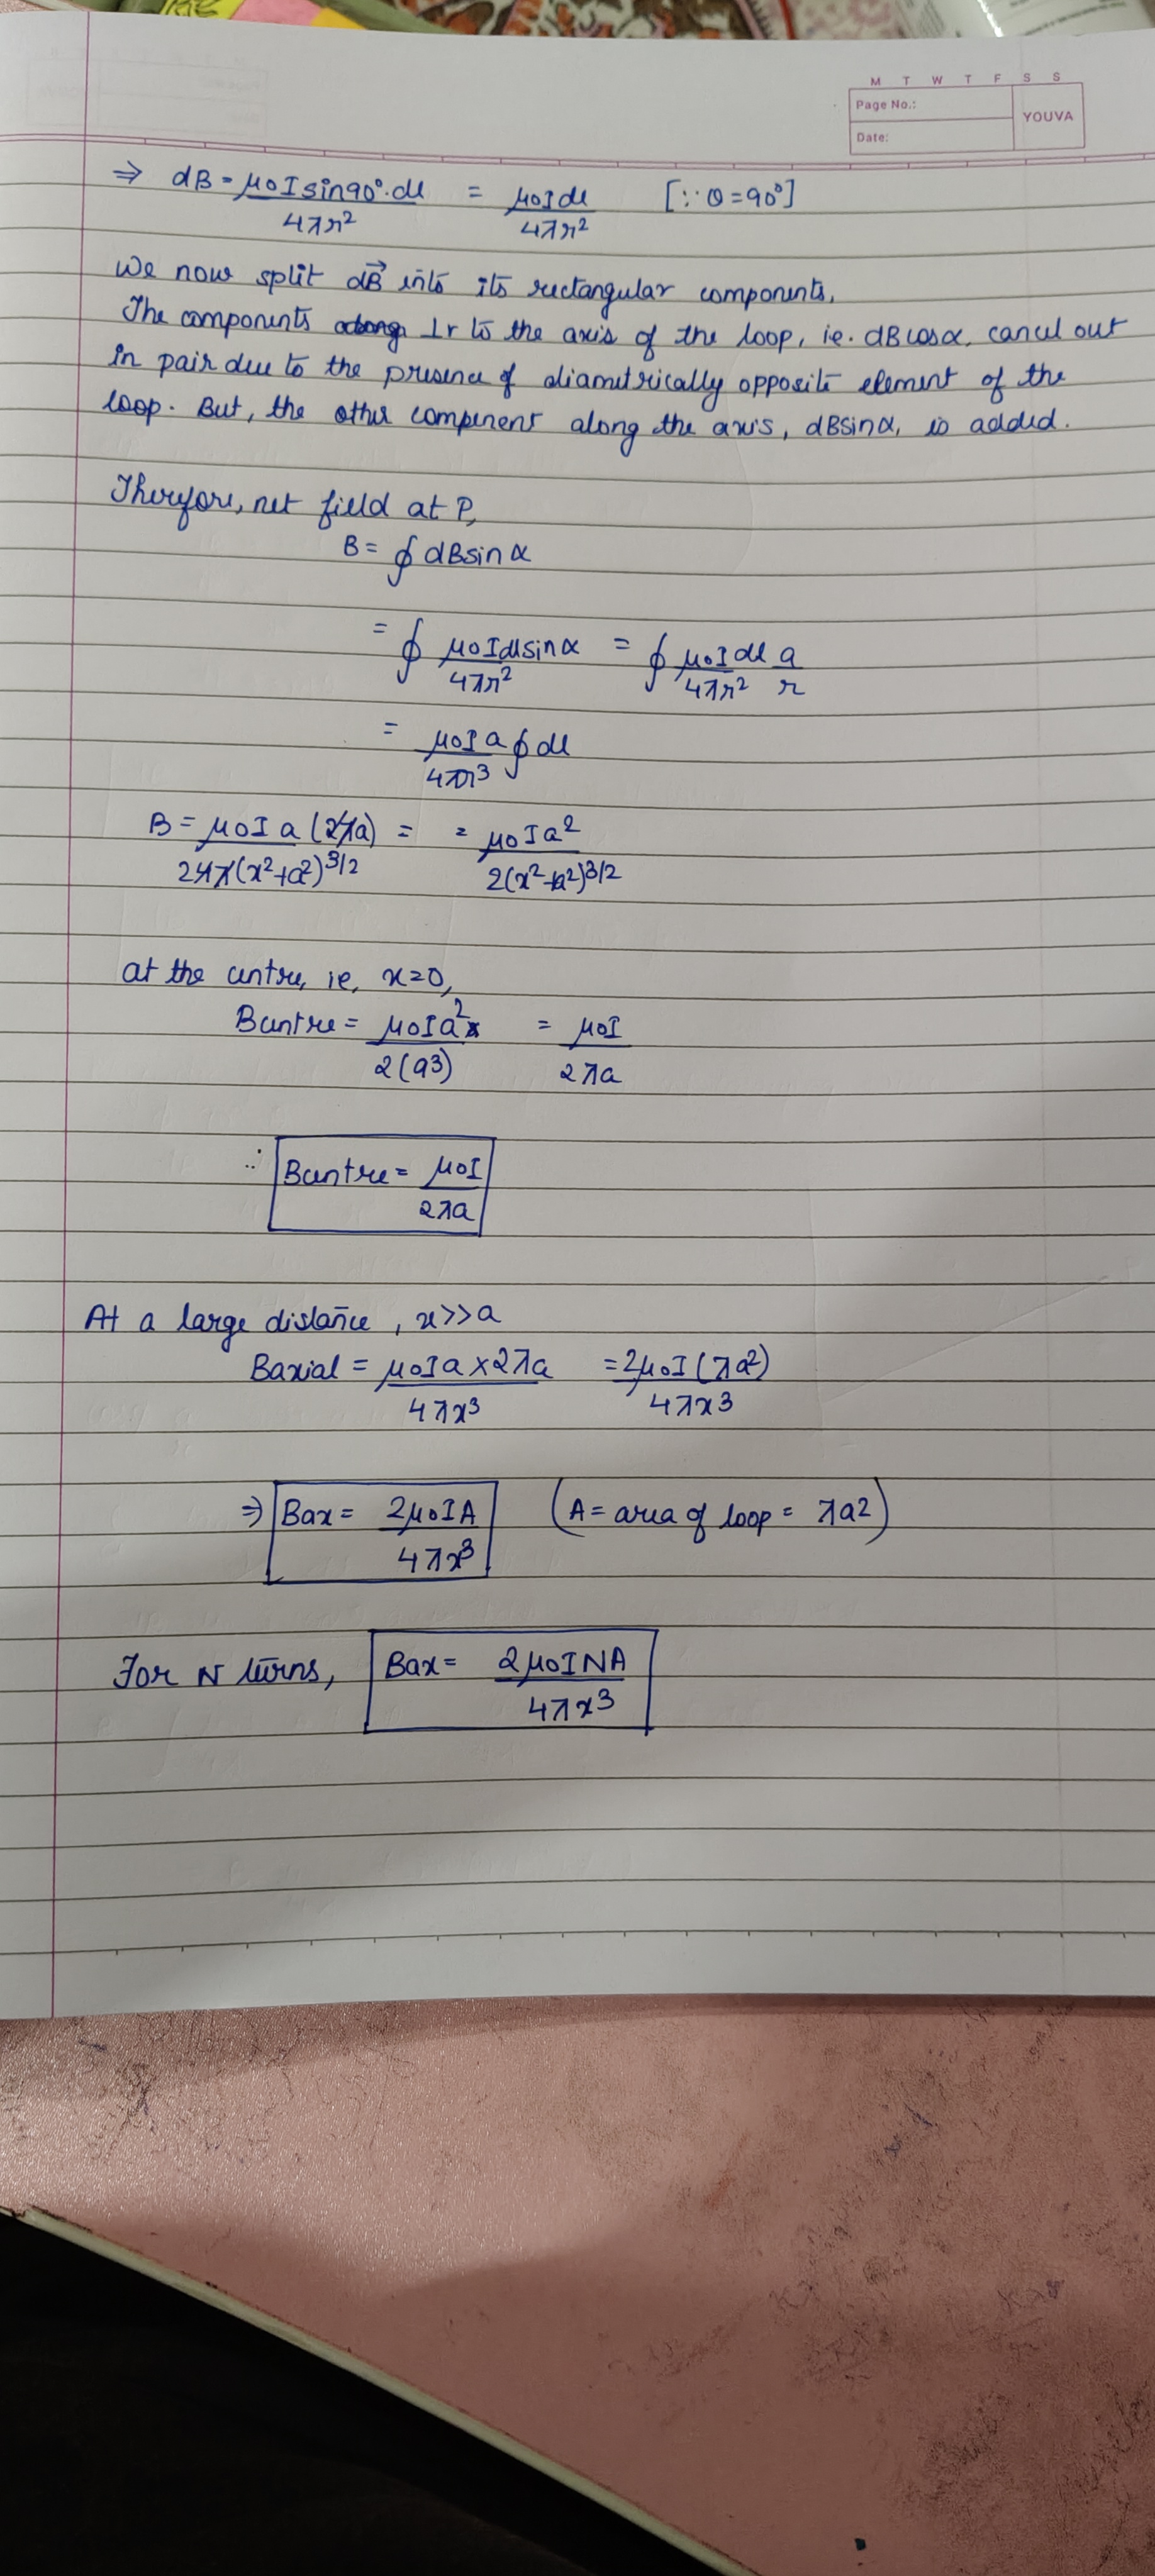 M T W T F S S
Page No.:
YOUVA
Date:
⇒ dB = μ0 I sin90°.dl / 4πr² = μ0 I dl / 4πr² [∵ θ = 90°]
We now split dB⃗ into its rectangular components.
The components along ⊥r to the axis of the loop, ie. dB cosα, cancel out
in pair due to the presence of diametrically opposite element of the
loop. But, the other component along the axis, dBsinα, is added.
Therefore, net field at P,
B = ∮ dBsinα
= ∮ μ0 I dl sinα / 4πr² = ∮ μ0 I dl / 4πr² a / r
= μ0 I a / 4πr³ ∮ dl
B = μ0 I a (2πa) / 24π(x²+a²)^3/2 = = μ0 I a² / 2(x²+a²)^3/2
at the centre, ie, x=0,
Bcentre = μ0 I a² / 2(a3) = μ0 I / 2πa
∴ Bcentre = μ0 I / 2πa
At a large distance, x>>a
Baxial = μ0 I a × 2πa / 4πx³ = 2μ0 I (πa²) / 4πx3
⇒ Bax = 2μ0 I A / 4πx³ (A = area of loop = πa2)
For N turns, Bax = 2μ0 I N A / 4πx3